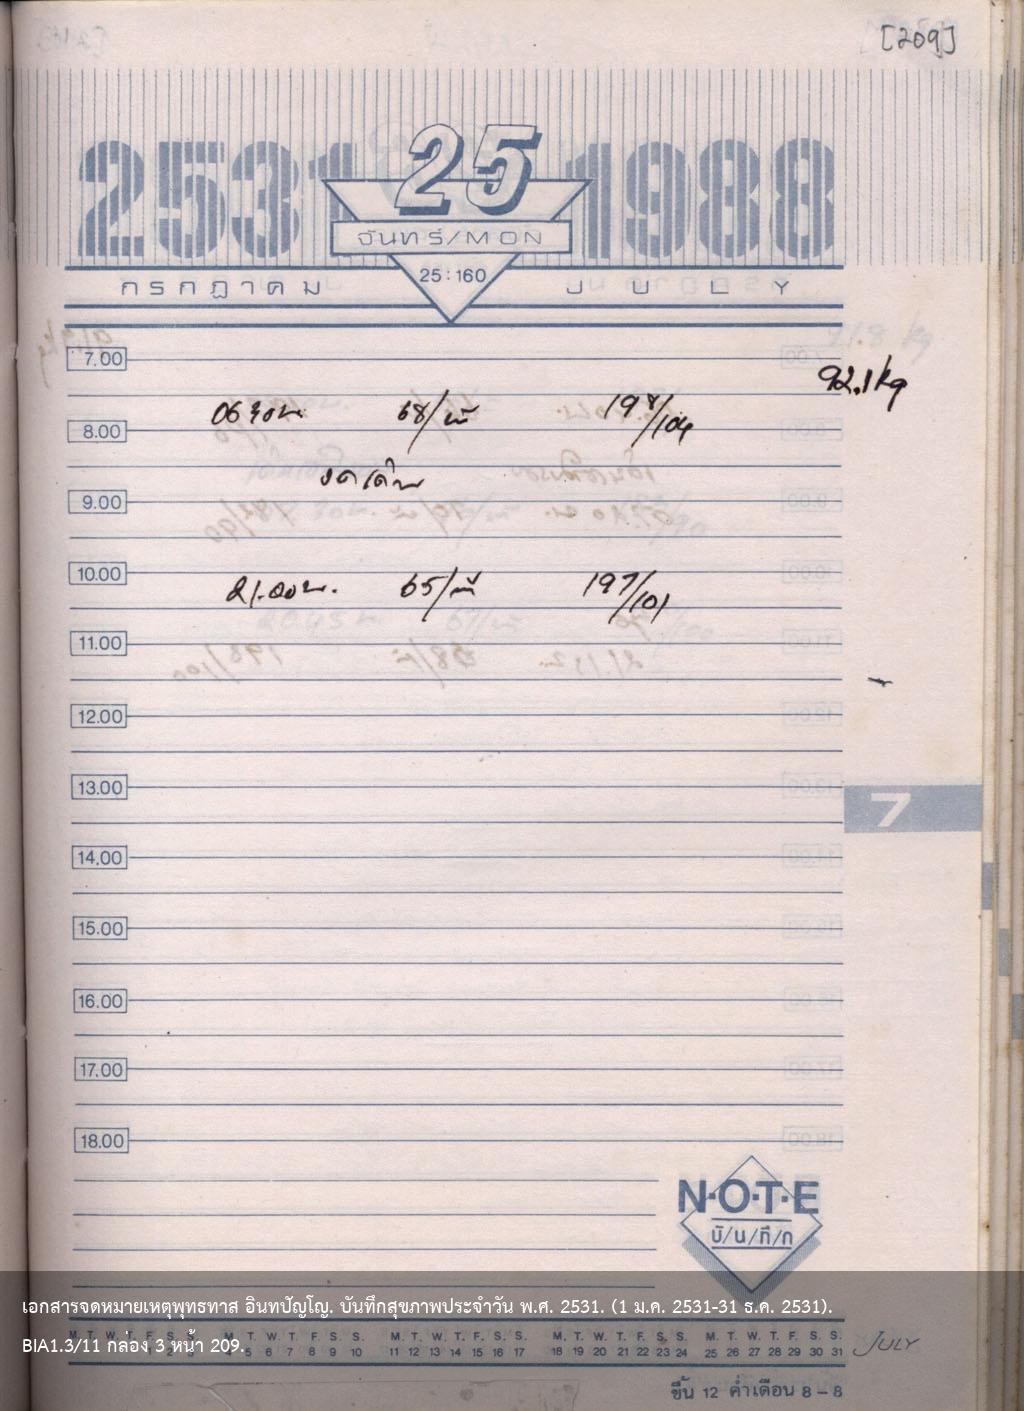 [209]
2531 25 1988
จันทร์/MON
กรกฎาคม 25:160 JULY
7.00
92.1 kg
06 30 น 68/น 198/104
8.00
งดเดิน
9.00
10.00
21.00 น. 65/น 197/101
11.00
12.00
13.00
7
14.00
15.00
16.00
17.00
18.00
N·O·T·E
บั/น/ทึ/ก
เอกสารจดหมายเหตุพุทธทาส อินทปัญโญ. บันทึกสุขภาพประจำวัน พ.ศ. 2531. (1 ม.ค. 2531-31 ธ.ค. 2531).
M. T. W. T. F. S. S. M. T. W. T. F. S. S. M. T. W. T. F. S. S. M. T. W. T. F. S. S. M. T. W. T. F. S. S.
BIA1.3/11 กล่อง 3 หน้า 209.
1 2 3 4 5 6 7 8 9 10 11 12 13 14 15 16 17 18 19 20 21 22 23 24 25 26 27 28 29 30 31 JULY
ขึ้น 12 ค่ำเดือน 8 – 8